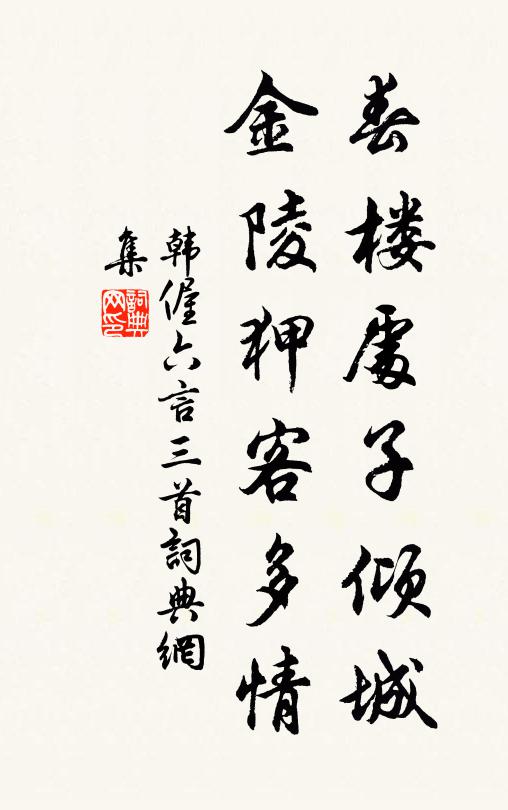 春楼處子倾城
金陵狎客多情
韩偓六言三首詞典網
集
詞典
网印